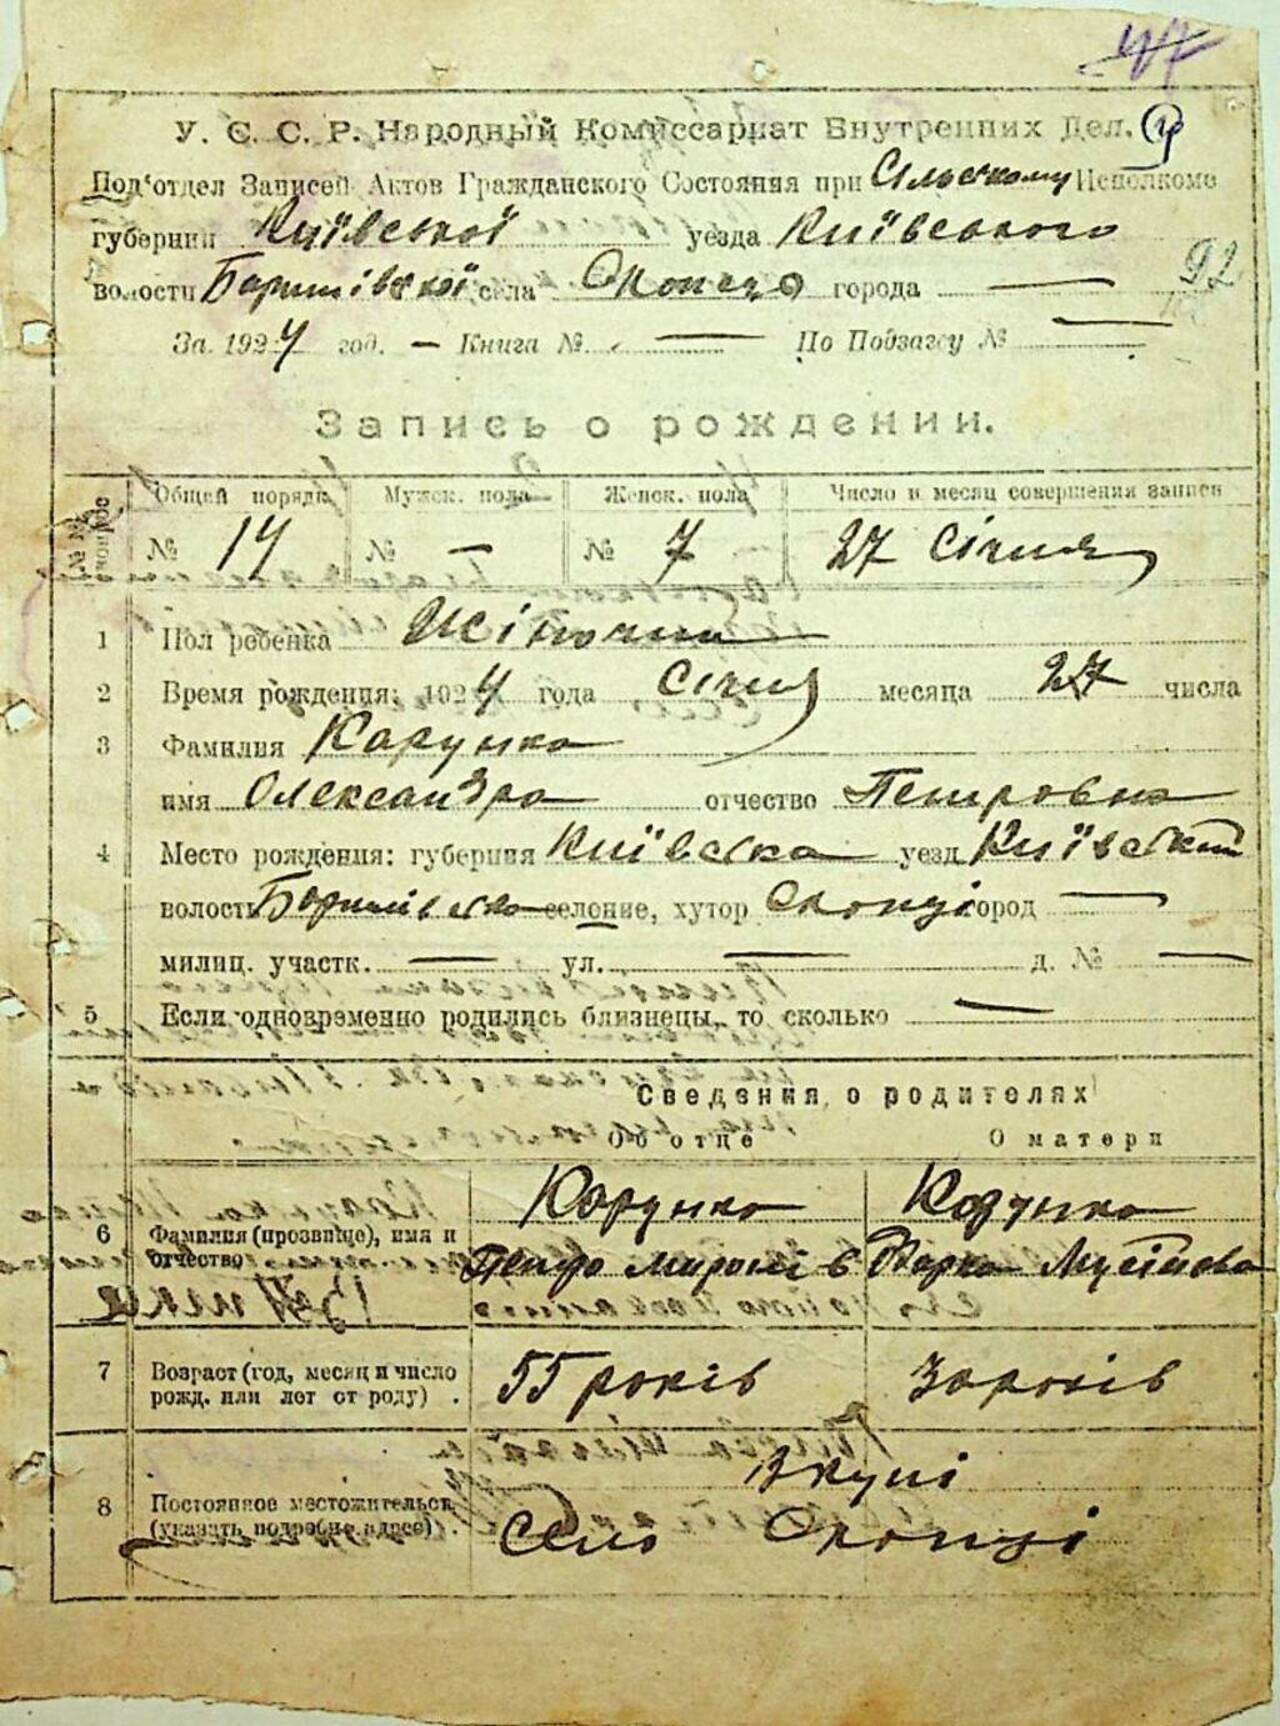 47
У. С. С. Р. Народный Комиссариат Внутренних Дел.
Под'отдел Записей Актов Гражданского Состояния при Сільському Исполкоме
губернии Київської уезда Київського
92
волости Баришівської села Скопців города —
За 1924 год. — Книга № — По Подзагсу № —
Запись о рождении.
№№ вопрос Общей порядк. Мужск. пола Женск. пола Число и месяц совершения записи
№ 14 № — № 7 27 Січня
1 Пол ребенка Жіночий
2 Время рождения: 1924 года Січня месяца 27 числа
3 Фамилия Карунка
имя Олександра отчество Петровна
4 Место рождения: губерния Київська уезд Київський
волость Баришівська селение, хутор Скопці город —
милиц. участк. — ул. — д. № —
5 Если одновременно родились близнецы, то сколько —
Сведения о родителях
Об отце О матери
Карунка Карунка
6 Фамилия (прозвище), имя и
отчество Петро Мирон Варка
7 Возраст (год, месяц и число
рожд. или лет от роду) . 55 років 30 років
Вкупі
8 Постоянное местожительск.
(указать подробно адрес) . Село Скопці